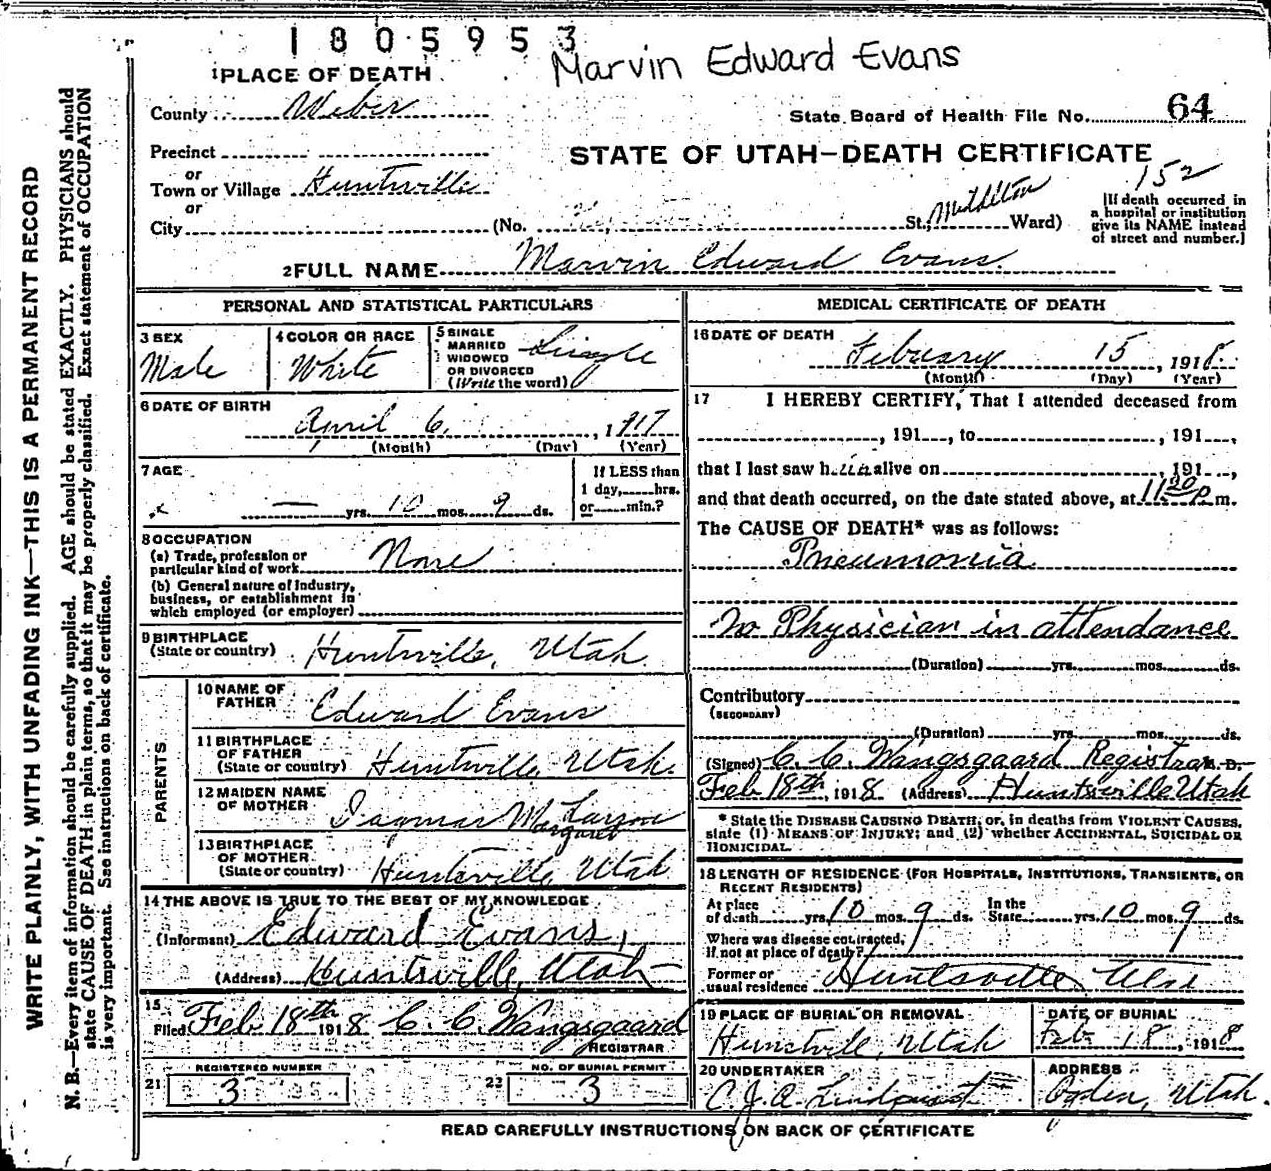 1805953
Marvin Edward Evans
1 PLACE OF DEATH
County Weber
State Board of Health File No. 64
Precinct
or
Town or Village Huntsville
or
City
STATE OF UTAH—DEATH CERTIFICATE
152
(No. St., Middleton Ward)
[If death occurred in
a hospital or institution
give its NAME instead
of street and number.]
2 FULL NAME Marvin Edward Evans.
PERSONAL AND STATISTICAL PARTICULARS
3 SEX
Male
4 COLOR OR RACE
White
5 SINGLE
MARRIED
WIDOWED
OR DIVORCED
(Write the word)
Single
6 DATE OF BIRTH
April 6, 1917
(Month) (Day) (Year)
7 AGE
— yrs. 10 mos. 9 ds.
If LESS than
1 day, hrs.
or min.?
8 OCCUPATION
(a) Trade, profession or
particular kind of work None
(b) General nature of Industry,
business, or establishment in
which employed (or employer)
9 BIRTHPLACE
(State or country) Huntsville, Utah
PARENTS
10 NAME OF
FATHER Edward Evans
11 BIRTHPLACE
OF FATHER
(State or country) Huntsville, Utah.
12 MAIDEN NAME
OF MOTHER Dagmar M. Larson
Margaret
13 BIRTHPLACE
OF MOTHER
(State or country) Huntsville, Utah
14 THE ABOVE IS TRUE TO THE BEST OF MY KNOWLEDGE
(Informant) Edward Evans,
(Address) Huntsville, Utah
15
Filed Feb. 18th 1918 C. C. Wangsgaard
REGISTRAR
21 REGISTERED NUMBER
3
22 NO. OF BURIAL PERMIT
3
MEDICAL CERTIFICATE OF DEATH
16 DATE OF DEATH
February 15, 1918.
(Month) (Day) (Year)
17 I HEREBY CERTIFY, That I attended deceased from
, 191 , to , 191 ,
that I last saw h alive on , 191 ,
and that death occurred, on the date stated above, at 11 20 P.m.
The CAUSE OF DEATH* was as follows:
Pneumonia
No Physician in attendance
(Duration) yrs. mos. ds.
Contributory
(SECONDARY)
(Duration) yrs. mos. ds.
(Signed) C. C. Wangsgaard Registrar M. D.
Feb 18th, 1918 (Address) Huntsville Utah
* State the DISEASE CAUSING DEATH, or, in deaths from VIOLENT CAUSES,
state (1) MEANS OF INJURY; and (2) whether ACCIDENTAL, SUICIDAL OR
HOMICIDAL.
18 LENGTH OF RESIDENCE (FOR HOSPITALS, INSTITUTIONS, TRANSIENTS, OR
RECENT RESIDENTS)
At place
of death yrs. 10 mos. 9 ds.
In the
State yrs. 10 mos. 9 ds.
Where was disease contracted,
if not at place of death?
Former or
usual residence Huntsville Utah
19 PLACE OF BURIAL OR REMOVAL
Huntsville, Utah
DATE OF BURIAL
Feb 18, 1918
20 UNDERTAKER
C. J. A. Lindquist
ADDRESS
Ogden, Utah.
READ CAREFULLY INSTRUCTIONS ON BACK OF CERTIFICATE
WRITE PLAINLY, WITH UNFADING INK—THIS IS A PERMANENT RECORD
N. B.—Every item of information should be carefully supplied. AGE should be stated EXACTLY. PHYSICIANS should
state CAUSE OF DEATH in plain terms, so that it may be properly classified. Exact statement of OCCUPATION
is very important. See instructions on back of certificate.